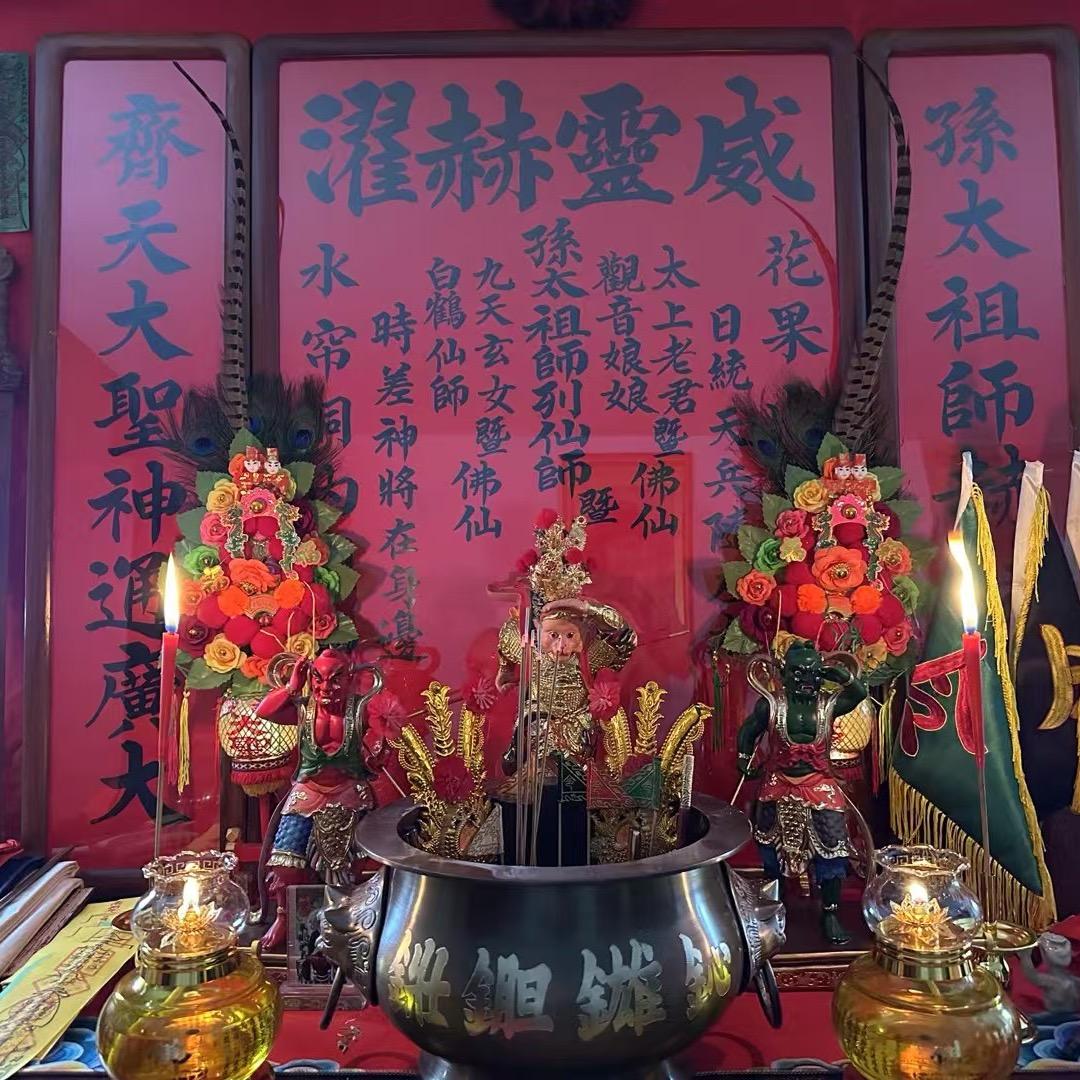 威靈赫濯
孫太祖師
花果
日統天兵
太上老君暨
觀音娘娘
佛仙
孫太祖師列仙師
暨
九天玄女暨
白鶴仙師
佛仙
時差神將在身邊
水帘洞內
齊天大聖神通廣大